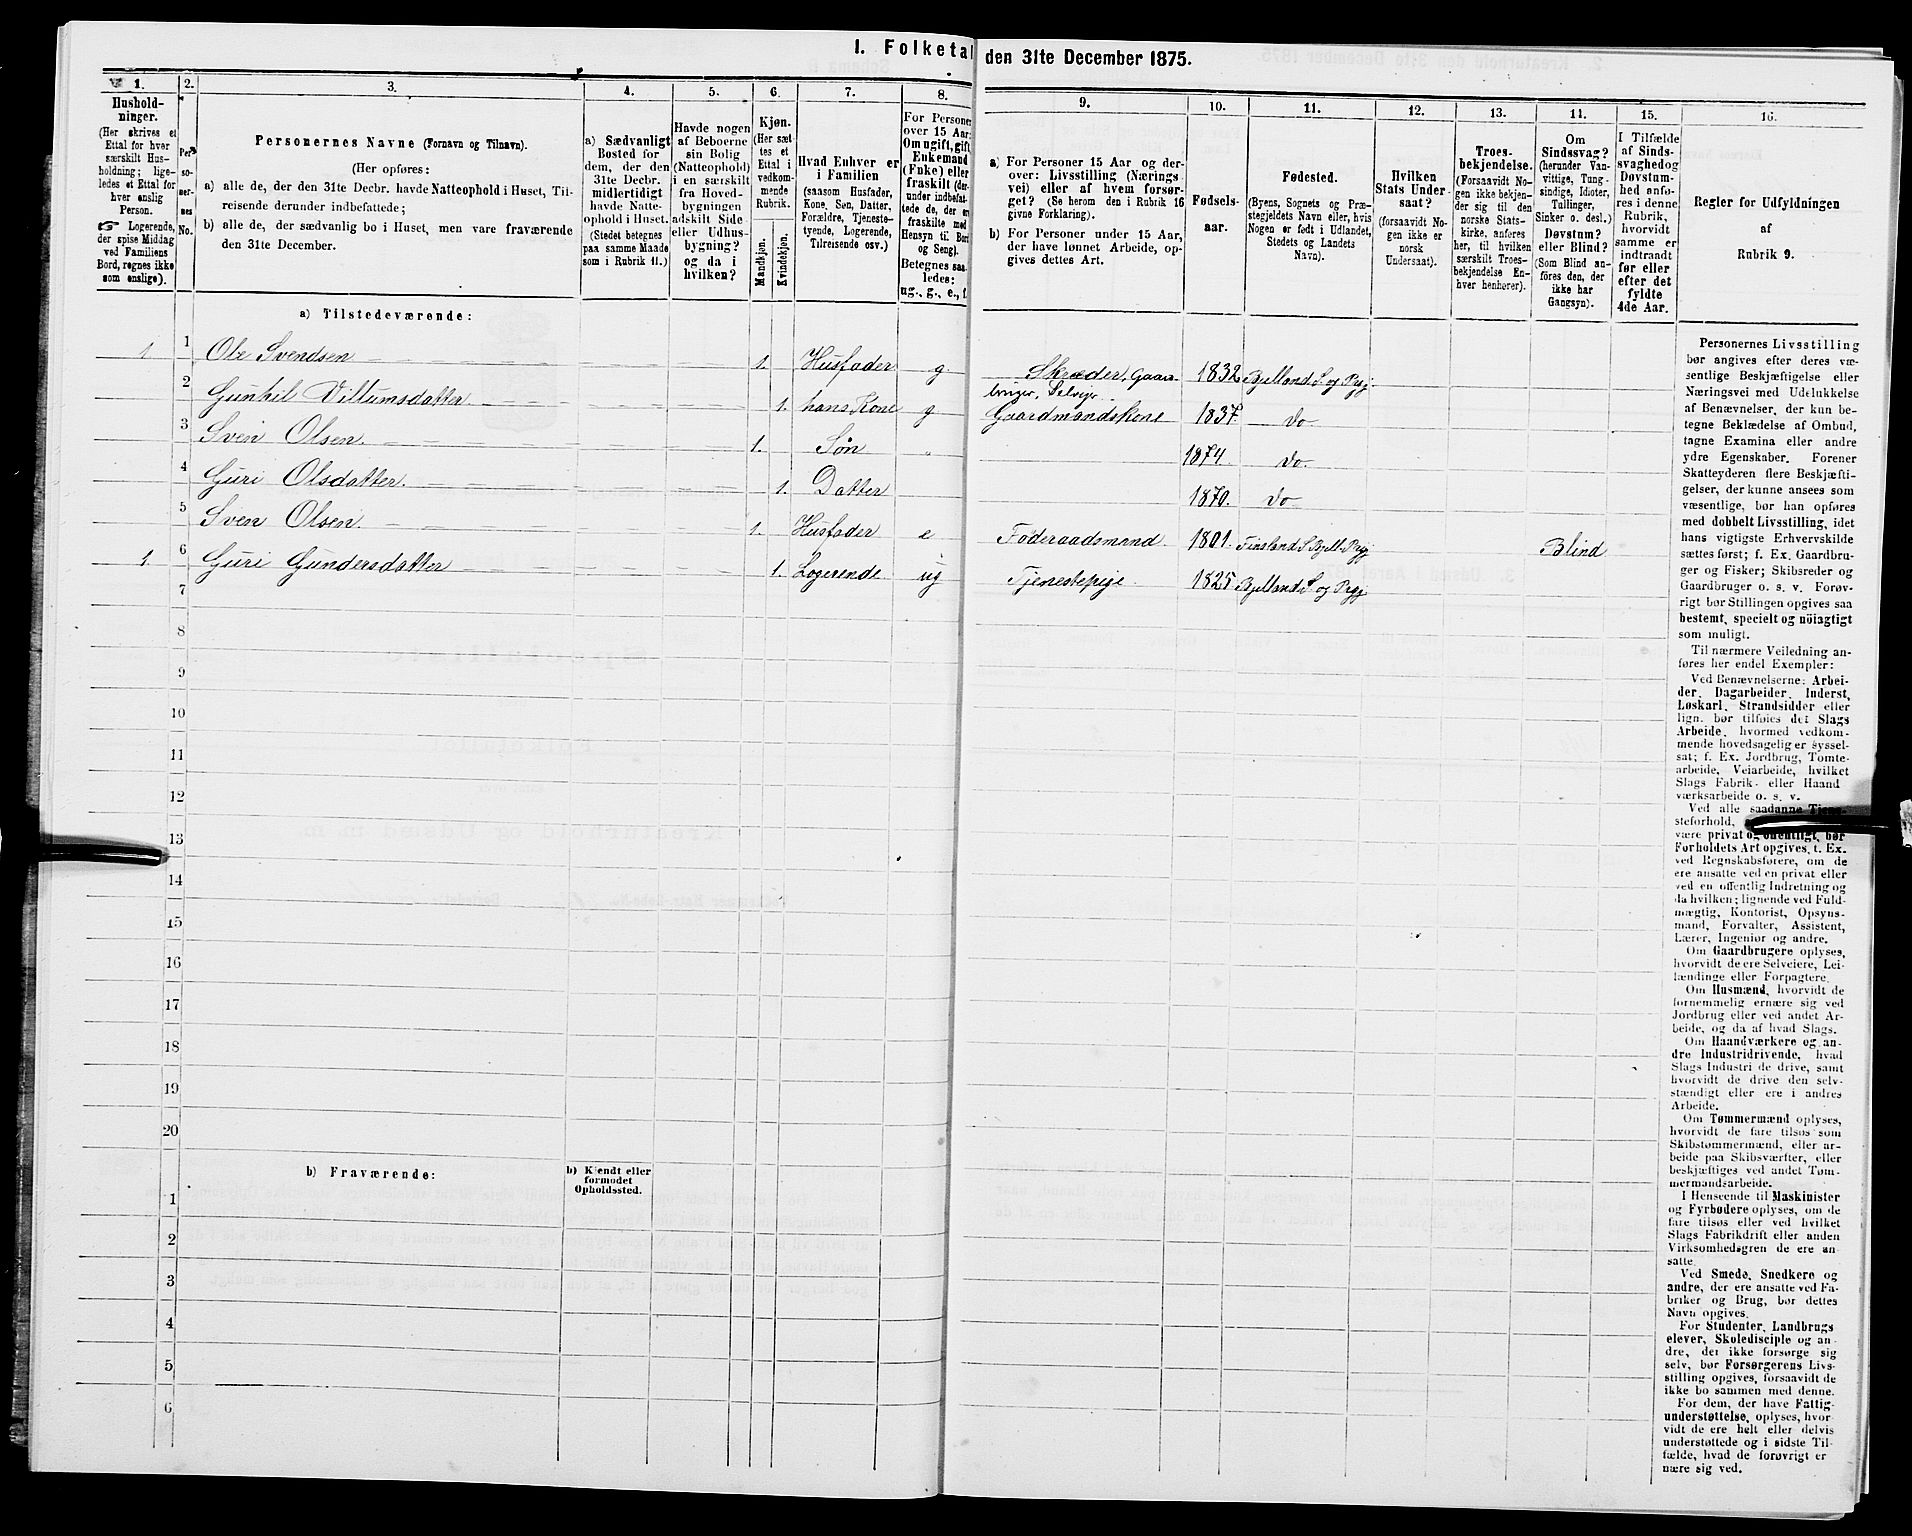 I. Folketal den 31te December 1875.
1.
Hushold-
ninger.
(Her skrives et
Ettal for hver
særskilt Hus-
holdning; lige-
ledes et Ettal for
hver enslig
Person.
☞ Logerende,
der spise Middag
ved Familiens
Bord, regnes ikke
som enslige).
2.
Per-
so-
ner-
nes
No.
3.
Personernes Navne (Fornavn og Tilnavn).
(Her opføres:
a) alle de, der den 31te Decbr. havde Natteophold i Huset, Til-
reisende derunder indbefattede;
b) alle de, der sædvanlig bo i Huset, men vare fraværende
den 31te December.
4.
a) Sædvanligt
Bosted for
dem, der den
31te Decbr.
midlertidigt
havde Natte-
ophold i Huset.
(Stedet betegnes
paa samme Maade
som i Rubrik 11.)
5.
Havde nogen
af Beboerne
sin Bolig
(Natteophold)
i en særskilt
fra Hoved-
bygningen
adskilt Side-
eller Udhus-
bygning?
og da i
hvilken?
6.
Kjøn.
(Her sæt-
tes et
Ettal i
vedkom-
mende
Rubrik.)
Mandkjøn.
Kvindekjøn.
7.
Hvad Enhver er
i Familien
(saasom Husfader,
Kone, Søn, Datter,
Forældre, Tjeneste-
tyende, Logerende,
Tilreisende osv.)
8.
For Personer
over 15 Aar:
Om ugift, gift,
Enkemand
(Enke) eller
fraskilt (der-
under indbefat-
tede de, der er
fraskilte med
Hensyn til Bord
og Seng).
Betegnes saa-
ledes:
ug., g., e., f.
9.
a) For Personer 15 Aar og der-
over: Livsstilling (Nærings-
vei) eller af hvem forsør-
get? (Se herom den i Rubrik 16
givne Forklaring).
b) For Personer under 15 Aar,
der have lønnet Arbeide, op-
gives dettes Art.
10.
Fødsels-
aar.
11.
Fødested.
(Byens, Sognets og Præ-
stegjeldets Navn eller, hvis
Nogen er født i Udlandet,
Stedets og Landets
Navn).
12.
Hvilken
Stats Under-
saat?
(forsaavidt No-
gen ikke er
norsk
Undersaat).
13.
Troes-
bekjendelse.
(Forsaavidt No-
gen ikke bekjen-
der sig til den
norske Stats-
kirke, anføres
her, til hvilken
særskilt Troes-
bekjendelse En-
hver henhører).
14.
Om
Sindssvag?
(herunder Van-
vittige, Tung-
sindige, Idioter,
Tullinger,
Sinker o. desl.)
Døvstum?
eller Blind?
(Som Blind an-
føres den, der
ikke har
Gangsyn).
15.
I Tilfælde
af Sinds-
svaghed og
Døvstum-
hed anfø-
res i denne
Rubrik,
hvorvidt
samme er
indtraadt
før eller
efter det
fyldte
4de Aar.
16.
Regler for Udfyldningen
af
Rubrik 9.
a) Tilstedeværende:
1 1 Ole Svendsen 1. Husfader g Skræder, Gaard- 1832 Bjelland S og Prgj
bruger, Selveier
2 Gunhil Villumsdatter 1. hans Kone g Gaardmandskone 1837. Do
3 Sven Olsen. 1. Søn „ 1874. Do.
4 Guri Olsdatter. 1. Datter 1870. Do
5 Sven Olsen. 1. Husfader e Føderaadsmand. 1801. Finsland S Bjell. Prgj Blind
1. 6 Guri Gundersdatter 1. Logerende. ug Tjenestepige. 1825 Bjelland S og Prgj
7
8
9
10
11
12
13
14
15
16
17
18
19
20
b) Fraværende:
b) Kjendt eller
formodet
Opholdssted.
1
2
3
4
5
6
Personernes Livsstilling
bør angives efter deres væ-
sentlige Beskjæftigelse eller
Næringsvei med Udelukkelse
af Benævnelser, der kun be-
tegne Beklædelse af Ombud,
tagne Examina eller andre
ydre Egenskaber. Forener
Skatteyderen flere Beskjæfti-
gelser, der kunne ansees som
væsentlige, bør han opføres
med dobbelt Livsstilling, idet
hans vigtigste Erhvervskilde
sættes først; f. Ex. Gaardbru-
ger og Fisker; Skibsreder og
Gaardbruger o. s. v. Forøv-
rigt bør Stillingen opgives saa
bestemt, specielt og nøiagtigt
som muligt.
Til nærmere Veiledning an-
føres her endel Exempler:
Ved Benævnelserne: Arbei-
der, Dagarbeider, Inderst,
Løskarl, Strandsidder eller
lign. bør tilføies det Slags
Arbeide, hvormed vedkom-
mende hovedsagelig er syssel-
sat; f. Ex. Jordbrug, Tomte-
arbeide, Veiarbeide, hvilket
Slags Fabrik- eller Haand
værksarbeide o. s. v.
Ved alle saadanne Tjene-
steforhold,
være privat og offentligt, bør
Forholdets Art opgives, f. Ex.
ved Regnskabsførere, om de
ere ansatte ved en privat eller
ved en offentlig Indretning og
da hvilken; lignende ved Fuld-
mægtig, Kontorist, Opsyns-
mand, Forvalter, Assistent,
Lærer, Ingeniør og andre.
Om Gaardbrugere oplyses,
hvorvidt de ere Selveiere, Lei-
lændinge eller Forpagtere.
Om Husmænd, hvorvidt de
fornemmelig ernære sig ved
Jordbrug eller ved andet Ar-
beide, og da af hvad Slags.
Om Haandværkere og an-
dre Industridrivende, hvad
Slags Industri de drive, samt
hvorvidt de drive den selv-
stændigt eller ere i andres
Arbeide.
Om Tømmermænd oplyses,
hvorvidt de fare tilsøs som
Skibstømmermænd, eller ar-
beide paa Skibsværfter, eller
beskjæftiges ved andet Tøm-
mermandsarbeide.
I Henseende til Maskinister
og Fyrbødere oplyses, om de
fare tilsøs eller ved hvilket
Slags Fabrikdrift eller anden
Virksomhedsgren de ere an-
satte.
Ved Smede, Snedkere og
andre, der ere ansatte ved Fa-
briker og Brug, bør dettes
Navn opgives.
For Studenter, Landbrugs
elever, Skoledisciple og an-
dre, der ikke forsørge sig
selv, bør Forsørgerens Livs-
stilling opgives, forsaavidt de
ikke bo sammen med denne.
For dem, der have Fattig-
understøttelse, oplyses, hvor-
vidt de ere helt eller delvis
understøttede og i sidste Til-
fælde, hvad de forøvrigt er
nære sig ved.